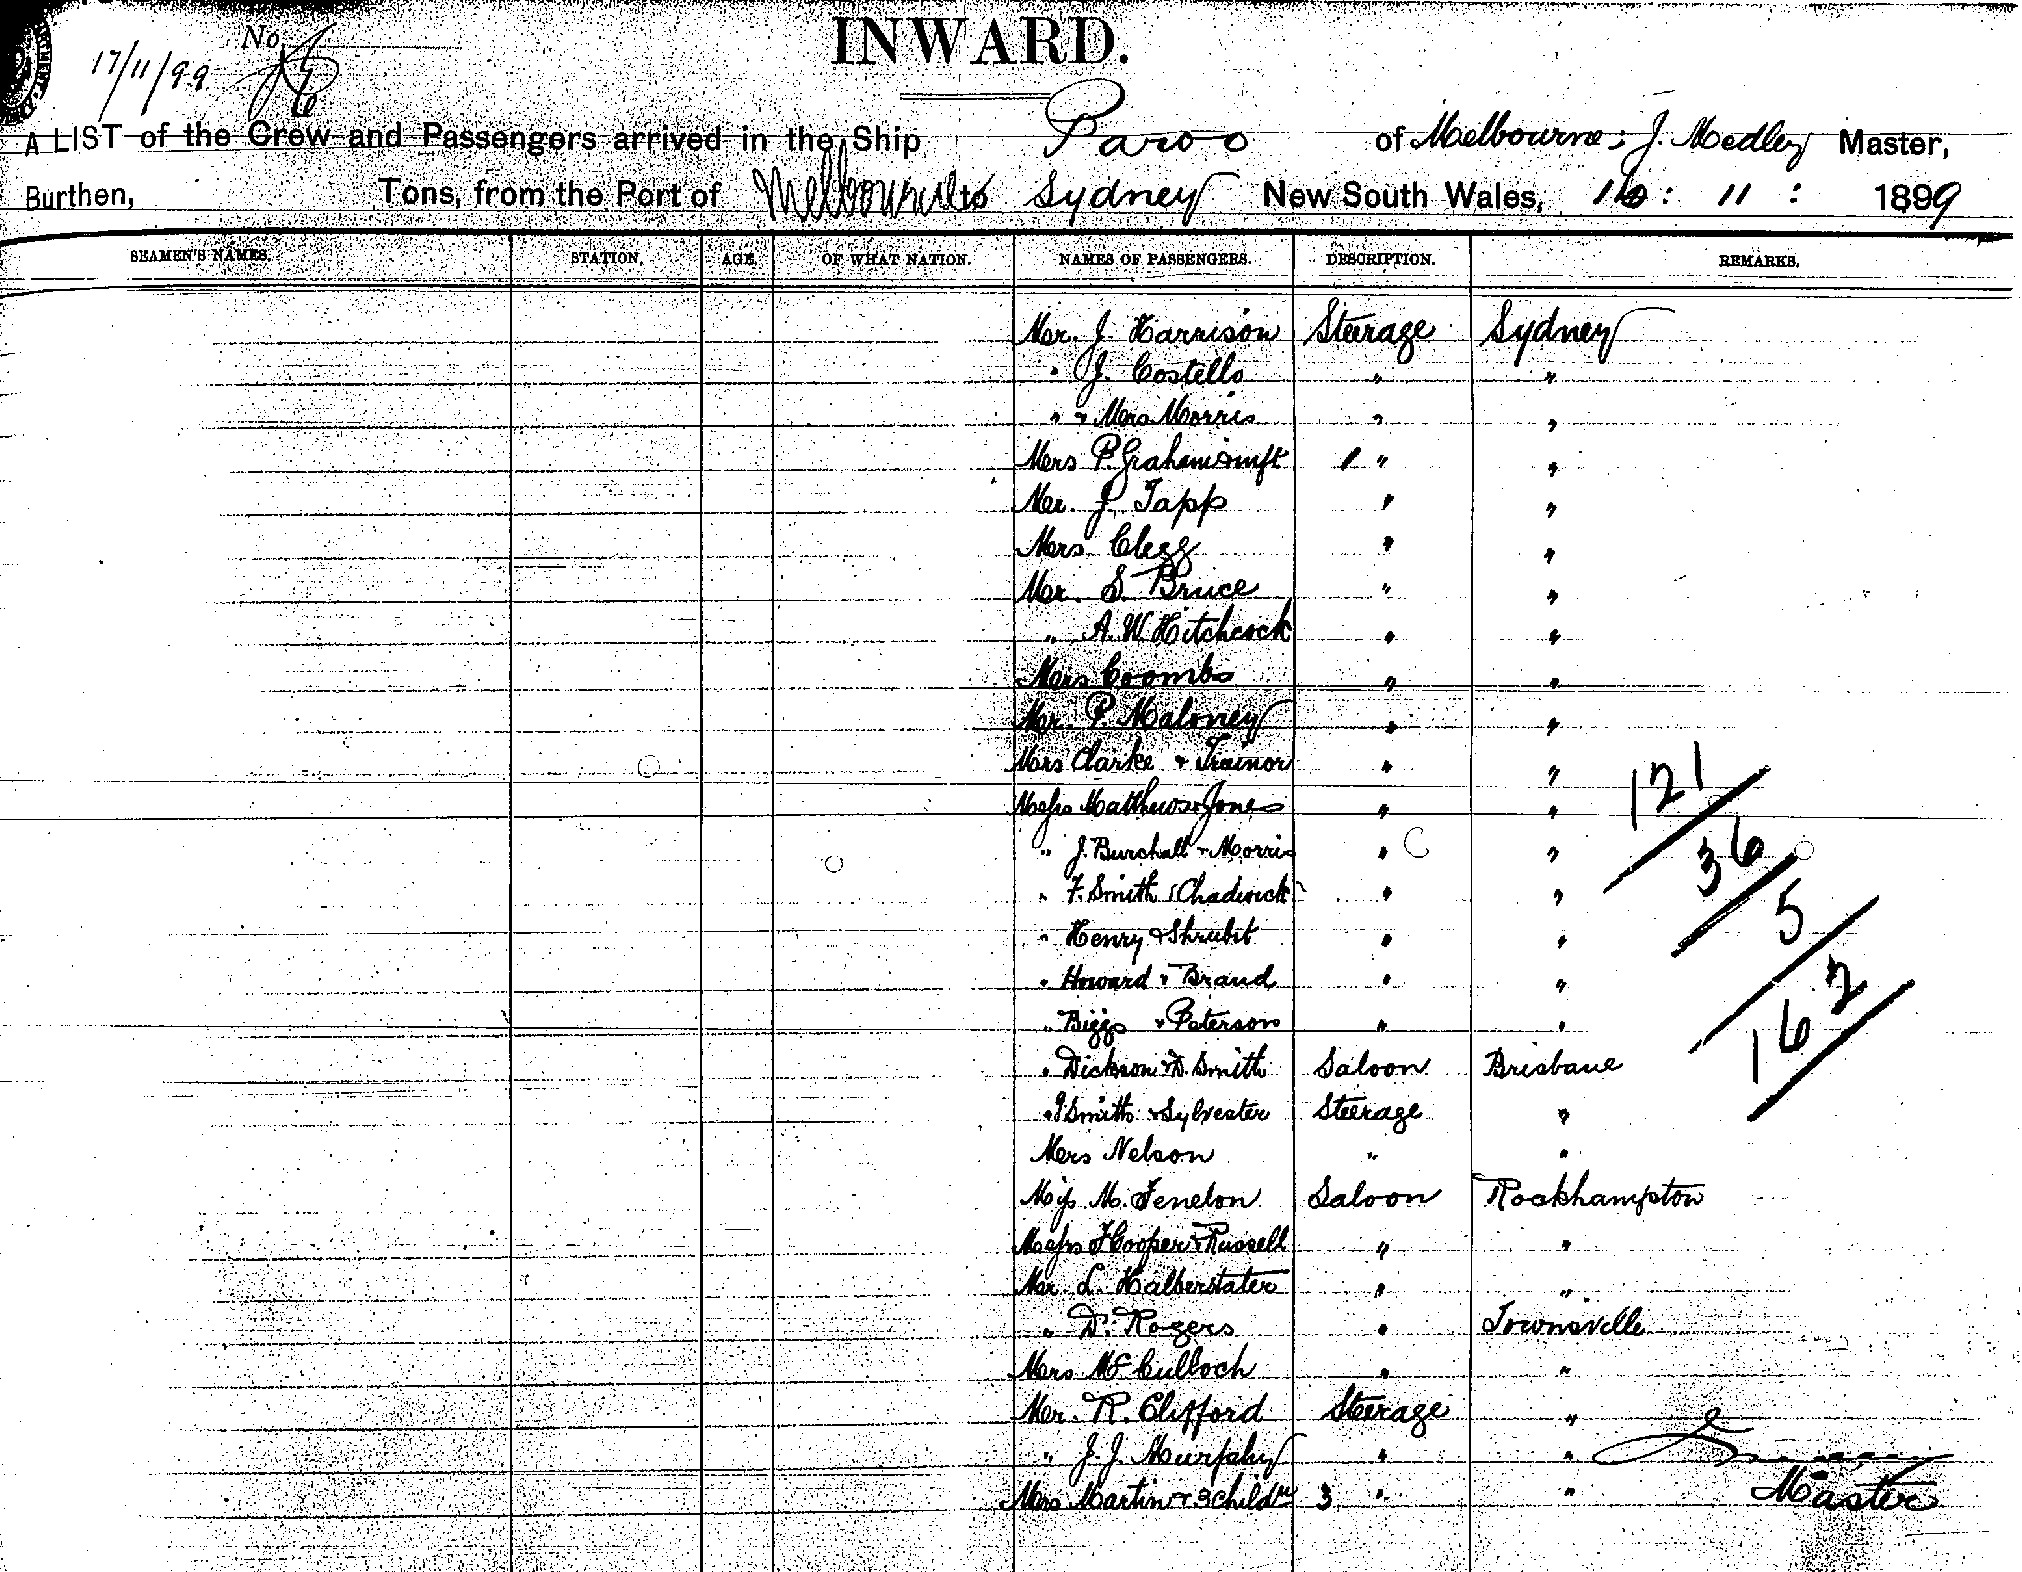 No
17/11/99
INWARD.
A LIST of the Crew and Passengers arrived in the Ship Paroo of Melbourne; J. Medley Master,
Burthen, Tons, from the Port of Melbourne to Sydney New South Wales, 16: 11: 1899
SEAMEN'S NAMES. STATION. AGE. OF WHAT NATION. NAMES OF PASSENGERS. DESCRIPTION. REMARKS.
Mr. J. Harrison Steerage Sydney
" J. Costello " "
" & Mrs Morris " "
Mrs P. Graham & inft 1 " "
Mr. J. Tapp " "
Mrs Clegg " "
Mr. S. Bruce " "
" A. W. Hitchcock " "
Mrs Coombs " "
Mr. P. Maloney " "
Mrs Clarke & Trainor " "
Messrs Matthews & Jones " "
" J. Burchall & Morris " "
" F. Smith & Chadwick " "
" Henry & Shrubit " "
" Howard & Brand " "
" Biggs & Peterson " "
" Dickson & D. Smith Saloon Brisbane
" J Smith & Sylvester Steerage "
Mrs Nelson " "
Miss M. Fenelon Saloon Rockhampton
Messrs F Cooper & Russell " "
Mr. L. Halberstater " "
" D. Rogers " Townsville
Mrs McCulloch " "
Mr. R. Clifford Steerage "
" J. J. Murphy " "
Mrs Martin & 3 childn 3 " "
121
36
5
162
Master